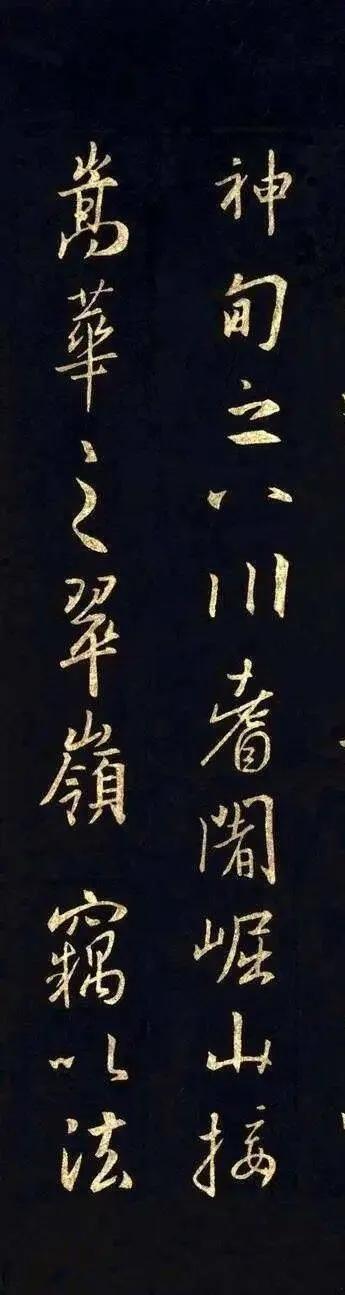 神甸之八川耆闍崛山接
嵩華之翠嶺竊以法